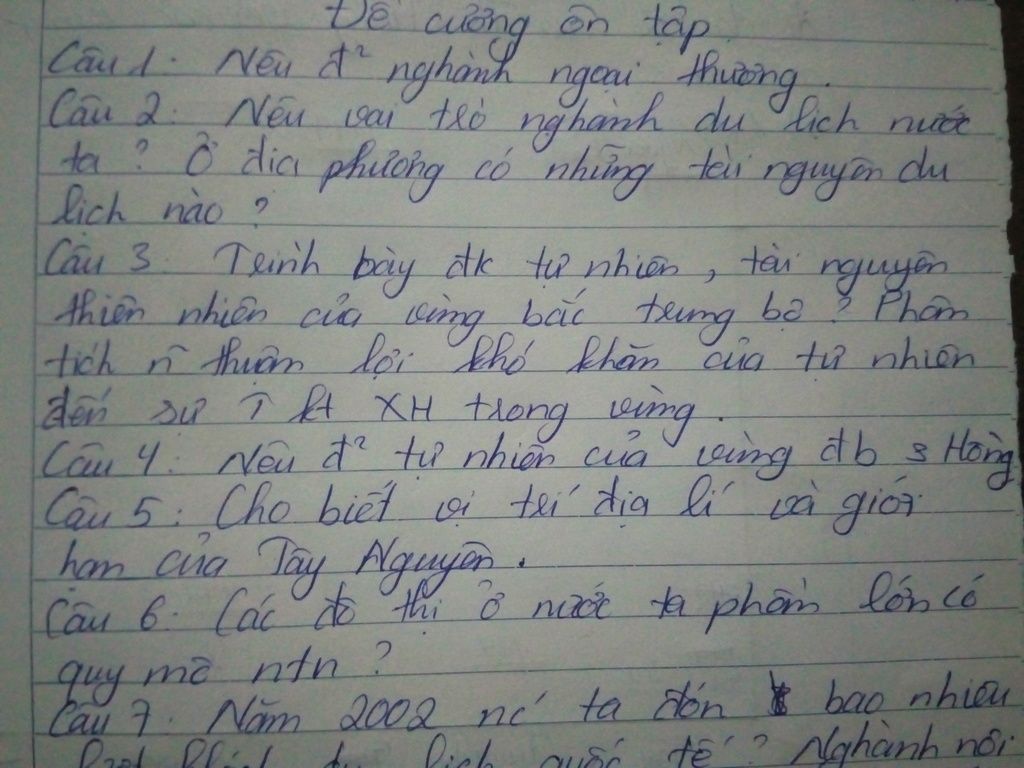 Đề cương ôn tập
Câu 1: Nêu đ² nghành ngoại thương.
Câu 2: Nêu vai trò nghành du lịch nước
ta? Ở địa phương có những tài nguyên du
lịch nào?
Câu 3. Trình bày đk tự nhiên, tài nguyên
thiên nhiên của vùng bắc trung bộ? Phân
tích n~ thuận lợi khó khăn của tự nhiên
đến sự kt XH trong vùng.
Câu 4: Nêu đ² tự nhiên của vùng đb s Hồng
Câu 5: Cho biết vị trí địa lí và giới
hạn của Tây Nguyên.
Câu 6: Các đô thị ở nước ta phần lớn có
quy mô ntn?
Câu 7: Năm 2002 nc ta đón bao nhiêu
lượt khách du lịch quốc tế? Nghành nội